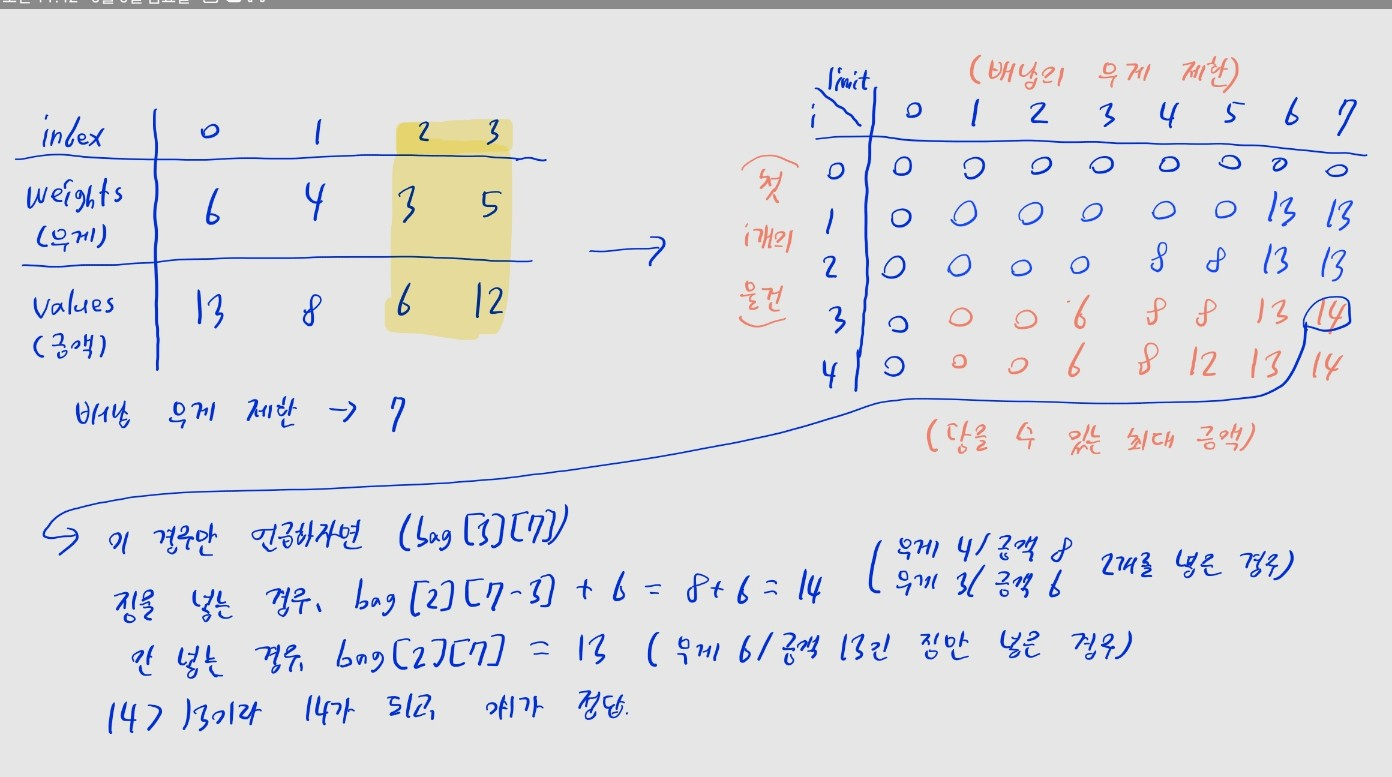 index 0 1 2 3
weights 6 4 3 5
(무게)
values 13 8 6 12
(금액)
배낭 무게 제한 → 7
(배낭의 무게 제한)
limit
i 0 1 2 3 4 5 6 7
0 0 0 0 0 0 0 0 0
1 0 0 0 0 0 0 13 13
2 0 0 0 0 8 8 13 13
3 0 0 0 6 8 8 13 14
4 0 0 0 6 8 12 13 14
(첫
i개의
물건)
(담을 수 있는 최대 금액)
이 경우만 언급하자면 (bag[3][7])
짐을 넣는 경우, bag[2][7-3] + 6 = 8+6 = 14
(무게 4/금액 8
무게 3/금액 6 2개를 넣은 경우)
안 넣는 경우, bag[2][7] = 13 (무게 6/금액 13인 짐만 넣은 경우)
14 > 13이라 14가 되고, 얘가 정답.